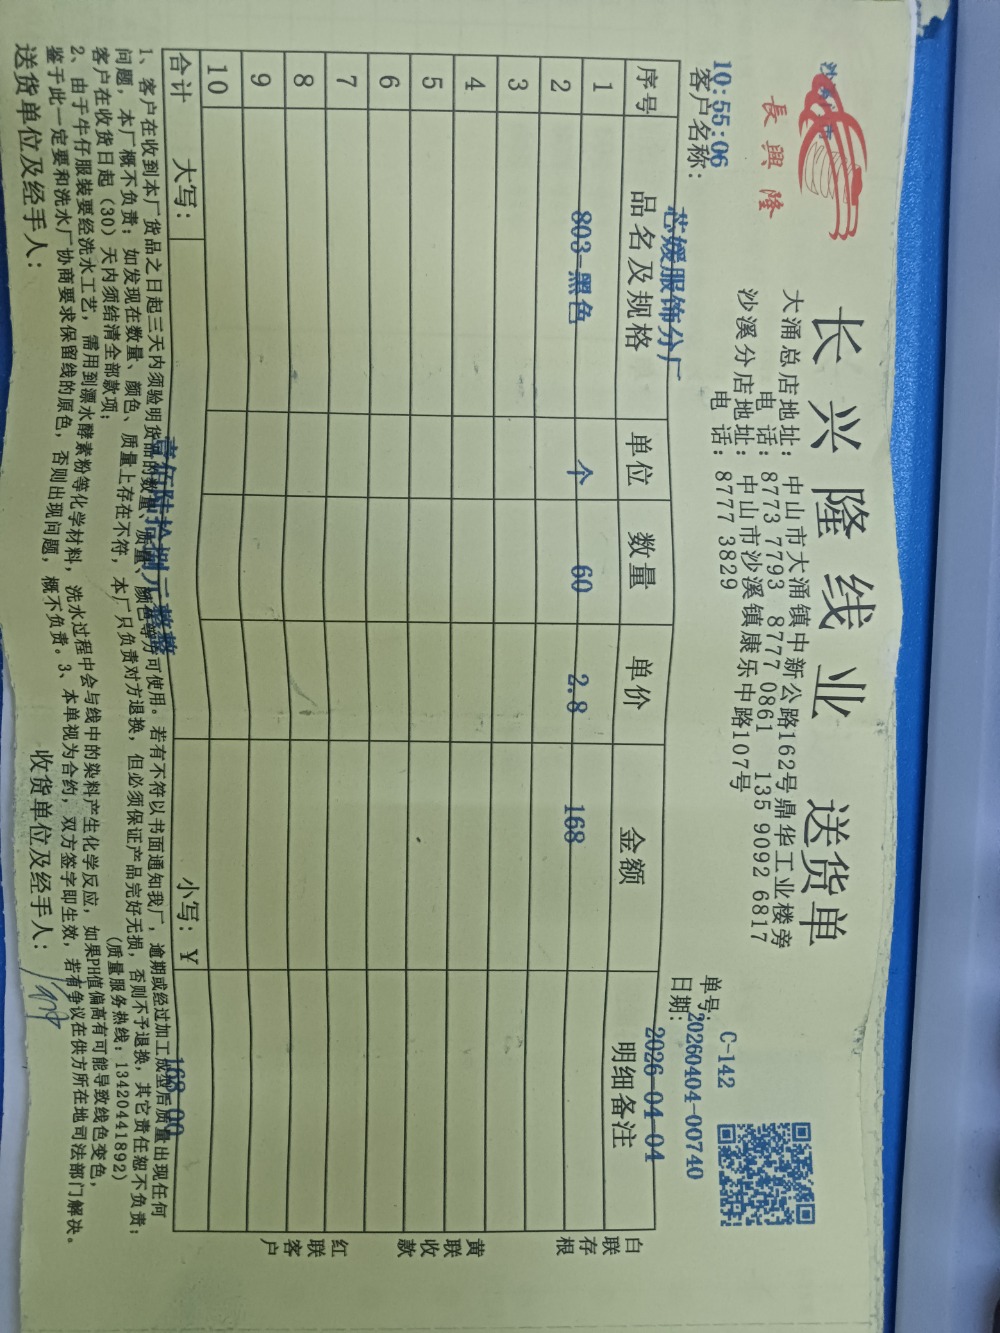 長興隆
长兴隆线业 送货单
大涌总店地址：中山市大涌镇中新公路162号鼎华工业楼旁
电话：8773 7793 8777 0861 135 9092 6817
沙溪分店地址：中山市沙溪镇康乐中路107号
电话：8777 3829
C-142
10:55:06
单号：20260404-00740
客户名称：芯媛服饰分厂
日期：2026-04-04
序号 品名及规格 单位 数量 单价 金额 明细备注
1 803-黑色 个 60 2.8 168
2
3
4
5
6
7
8
9
10
合计 大写：壹佰陆拾捌元整 小写：¥ 168.00
白联存根
黄联收款
红联客户
1、客户在收到本厂货品之日起三天内须验明货品的数量、质量、颜色等方可使用。若有不符以书面通知我厂，逾期或经过加工成型后质量出现任何
问题，本厂概不负责；如发现在数量、颜色、质量上存在不符，本厂只负责对方退换，但必须保证产品完好无损，否则不予退换，其它责任恕不负责；
客户在收货日起（30）天内须结清全部款项；（质量服务热线：13420441892）
2、由于牛仔服装要经洗水工艺，需用到漂水酵素粉等化学材料，洗水过程中会与线中的染料产生化学反应，如果PH值偏高有可能导致线色变色，
鉴于此一定要和洗水厂协商要求保留线的原色，否则出现问题，概不负责。3、本单视为合约，双方签字即生效，若有争议在供方所在地司法部门解决。
送货单位及经手人： 收货单位及经手人：